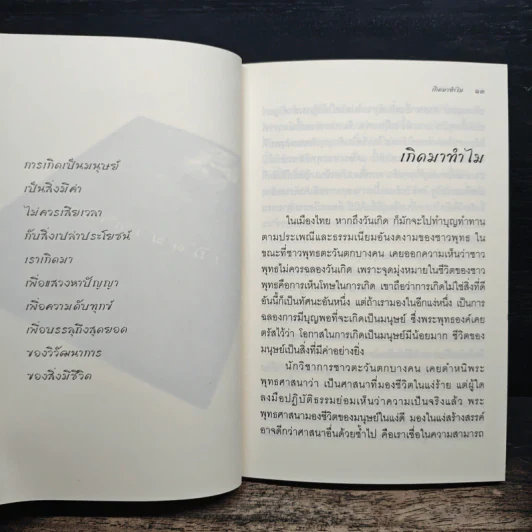 การเกิดเป็นมนุษย์
เป็นสิ่งมีค่า
ไม่ควรเสียเวลา
กับสิ่งเปล่าประโยชน์
เราเกิดมา
เพื่อแสวงหาปัญญา
เพื่อความดับทุกข์
เพื่อบรรลุถึงสุดยอด
ของวิวัฒนาการ
ของสิ่งมีชีวิต
เกิดมาทำไม ๑๓
เกิดมาทำไม
ในเมืองไทย หากถึงวันเกิด ก็มักจะไปทำบุญทำทาน
ตามประเพณีและธรรมเนียมอันงดงามของชาวพุทธ ใน
ขณะที่ชาวพุทธตะวันตกบางคน เคยออกความเห็นว่าชาว
พุทธไม่ควรฉลองวันเกิด เพราะจุดมุ่งหมายในชีวิตของชาว
พุทธคือการเห็นโทษในการเกิด เขาถือว่าการเกิดไม่ใช่สิ่งที่ดี
อันนี้ก็เป็นทัศนะอันหนึ่ง แต่ถ้าเรามองในอีกแง่หนึ่ง เป็นการ
ฉลองการมีบุญพอที่จะเกิดเป็นมนุษย์ ซึ่งพระพุทธองค์เคย
ตรัสไว้ว่า โอกาสในการเกิดเป็นมนุษย์มีน้อยมาก ชีวิตของ
มนุษย์เป็นสิ่งที่มีค่าอย่างยิ่ง
นักวิชาการชาวตะวันตกบางคน เคยตำหนิพระ
พุทธศาสนาว่า เป็นศาสนาที่มองชีวิตในแง่ร้าย แต่ผู้ใด
ลงมือปฏิบัติธรรมย่อมเห็นว่าความเป็นจริงแล้ว พระ
พุทธศาสนามองชีวิตของมนุษย์ในแง่ดี มองในแง่สร้างสรรค์
อาจดีกว่าศาสนาอื่นด้วยซ้ำไป คือเราเชื่อในความสามารถ